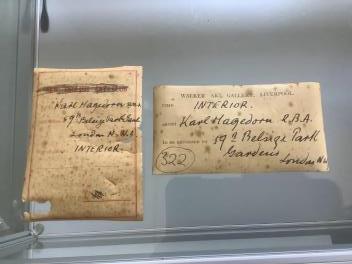 Karl Hagedorn RBA
59A Belsize Park
London N.W.
INTERIOR
WALKER ART GALLERY, LIVERPOOL.
INTERIOR.
Karl Hagedorn R.B.A.
TO BE RETURNED TO 59A Belsize Park
Gardens
322
London NW